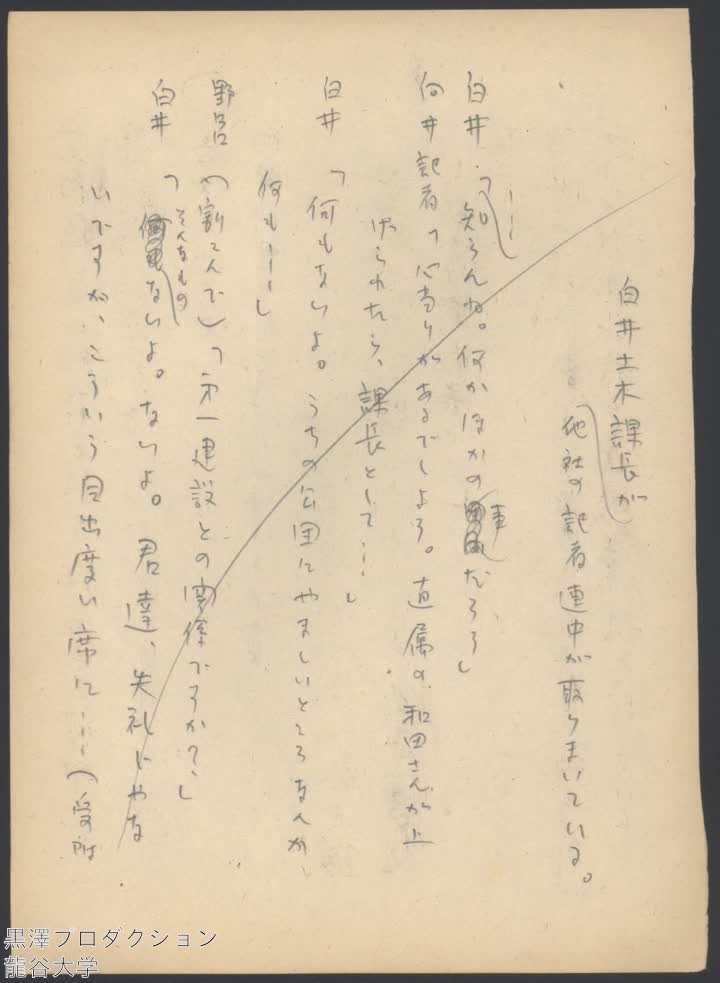 白井土木課長が
他社の記者連中が取りまいている。
白井「……知らんね。何かほかの事だろう」
向井記者「心当りがあるでしょう。直属の和田さんが上
げられたら、課長として……」
白井「何もないよ。うちの公団にやましいところなんか、
何も……」
野呂（割こんで）「第一建設との関係ですか？」
白井「そんなものないよ。ないよ。君達、失礼じゃな
いですか、こういう目出度い席に……（受附
黒澤プロダクション
龍谷大学